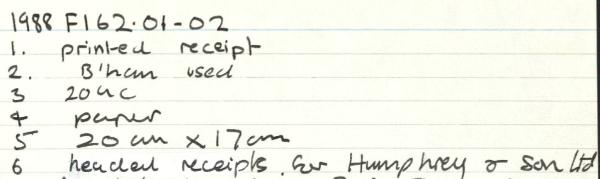 1988 F162.01-02
1. printed receipt
2. B'ham used
3 20thC
4 paper
5 20 cm x 17 cm
6 headed receipts for Humphrey & Son Ltd